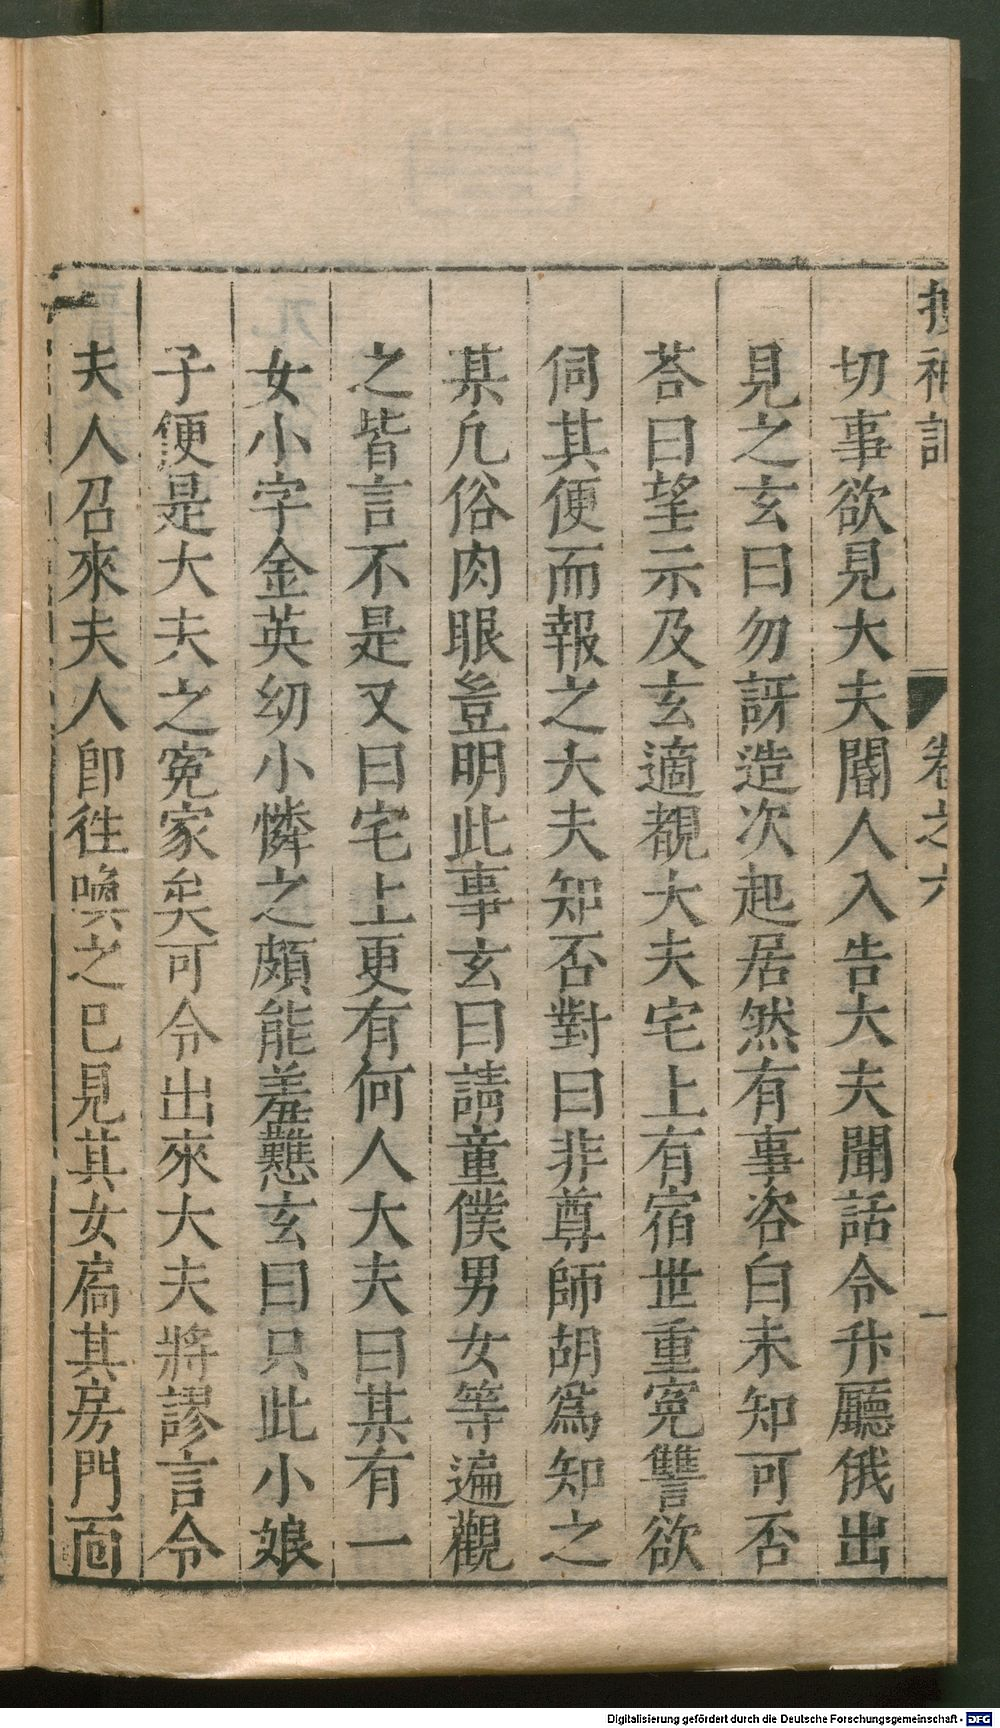 搜神記 卷之六 一
切事欲見大夫閽人入告大夫聞話令升廳俄出
見之玄曰勿訝造次起居然有事咨白未知可否
荅曰望示及玄適覩大夫宅上有宿世重冤讐欲
伺其便而報之大夫知否對曰非尊師胡爲知之
某凢俗肉眼豈明此事玄曰請童僕男女等遍觀
之皆言不是又曰宅上更有何人大夫曰某有一
女小字金英幼小憐之頗能羞難玄曰只此小娘
子便是大夫之冤家矣可令出來大夫將謬言令
夫人召來夫人卽徃喚之已見其女扃其房門面
Digitalisierung gefördert durch die Deutsche Forschungsgemeinschaft - DFG